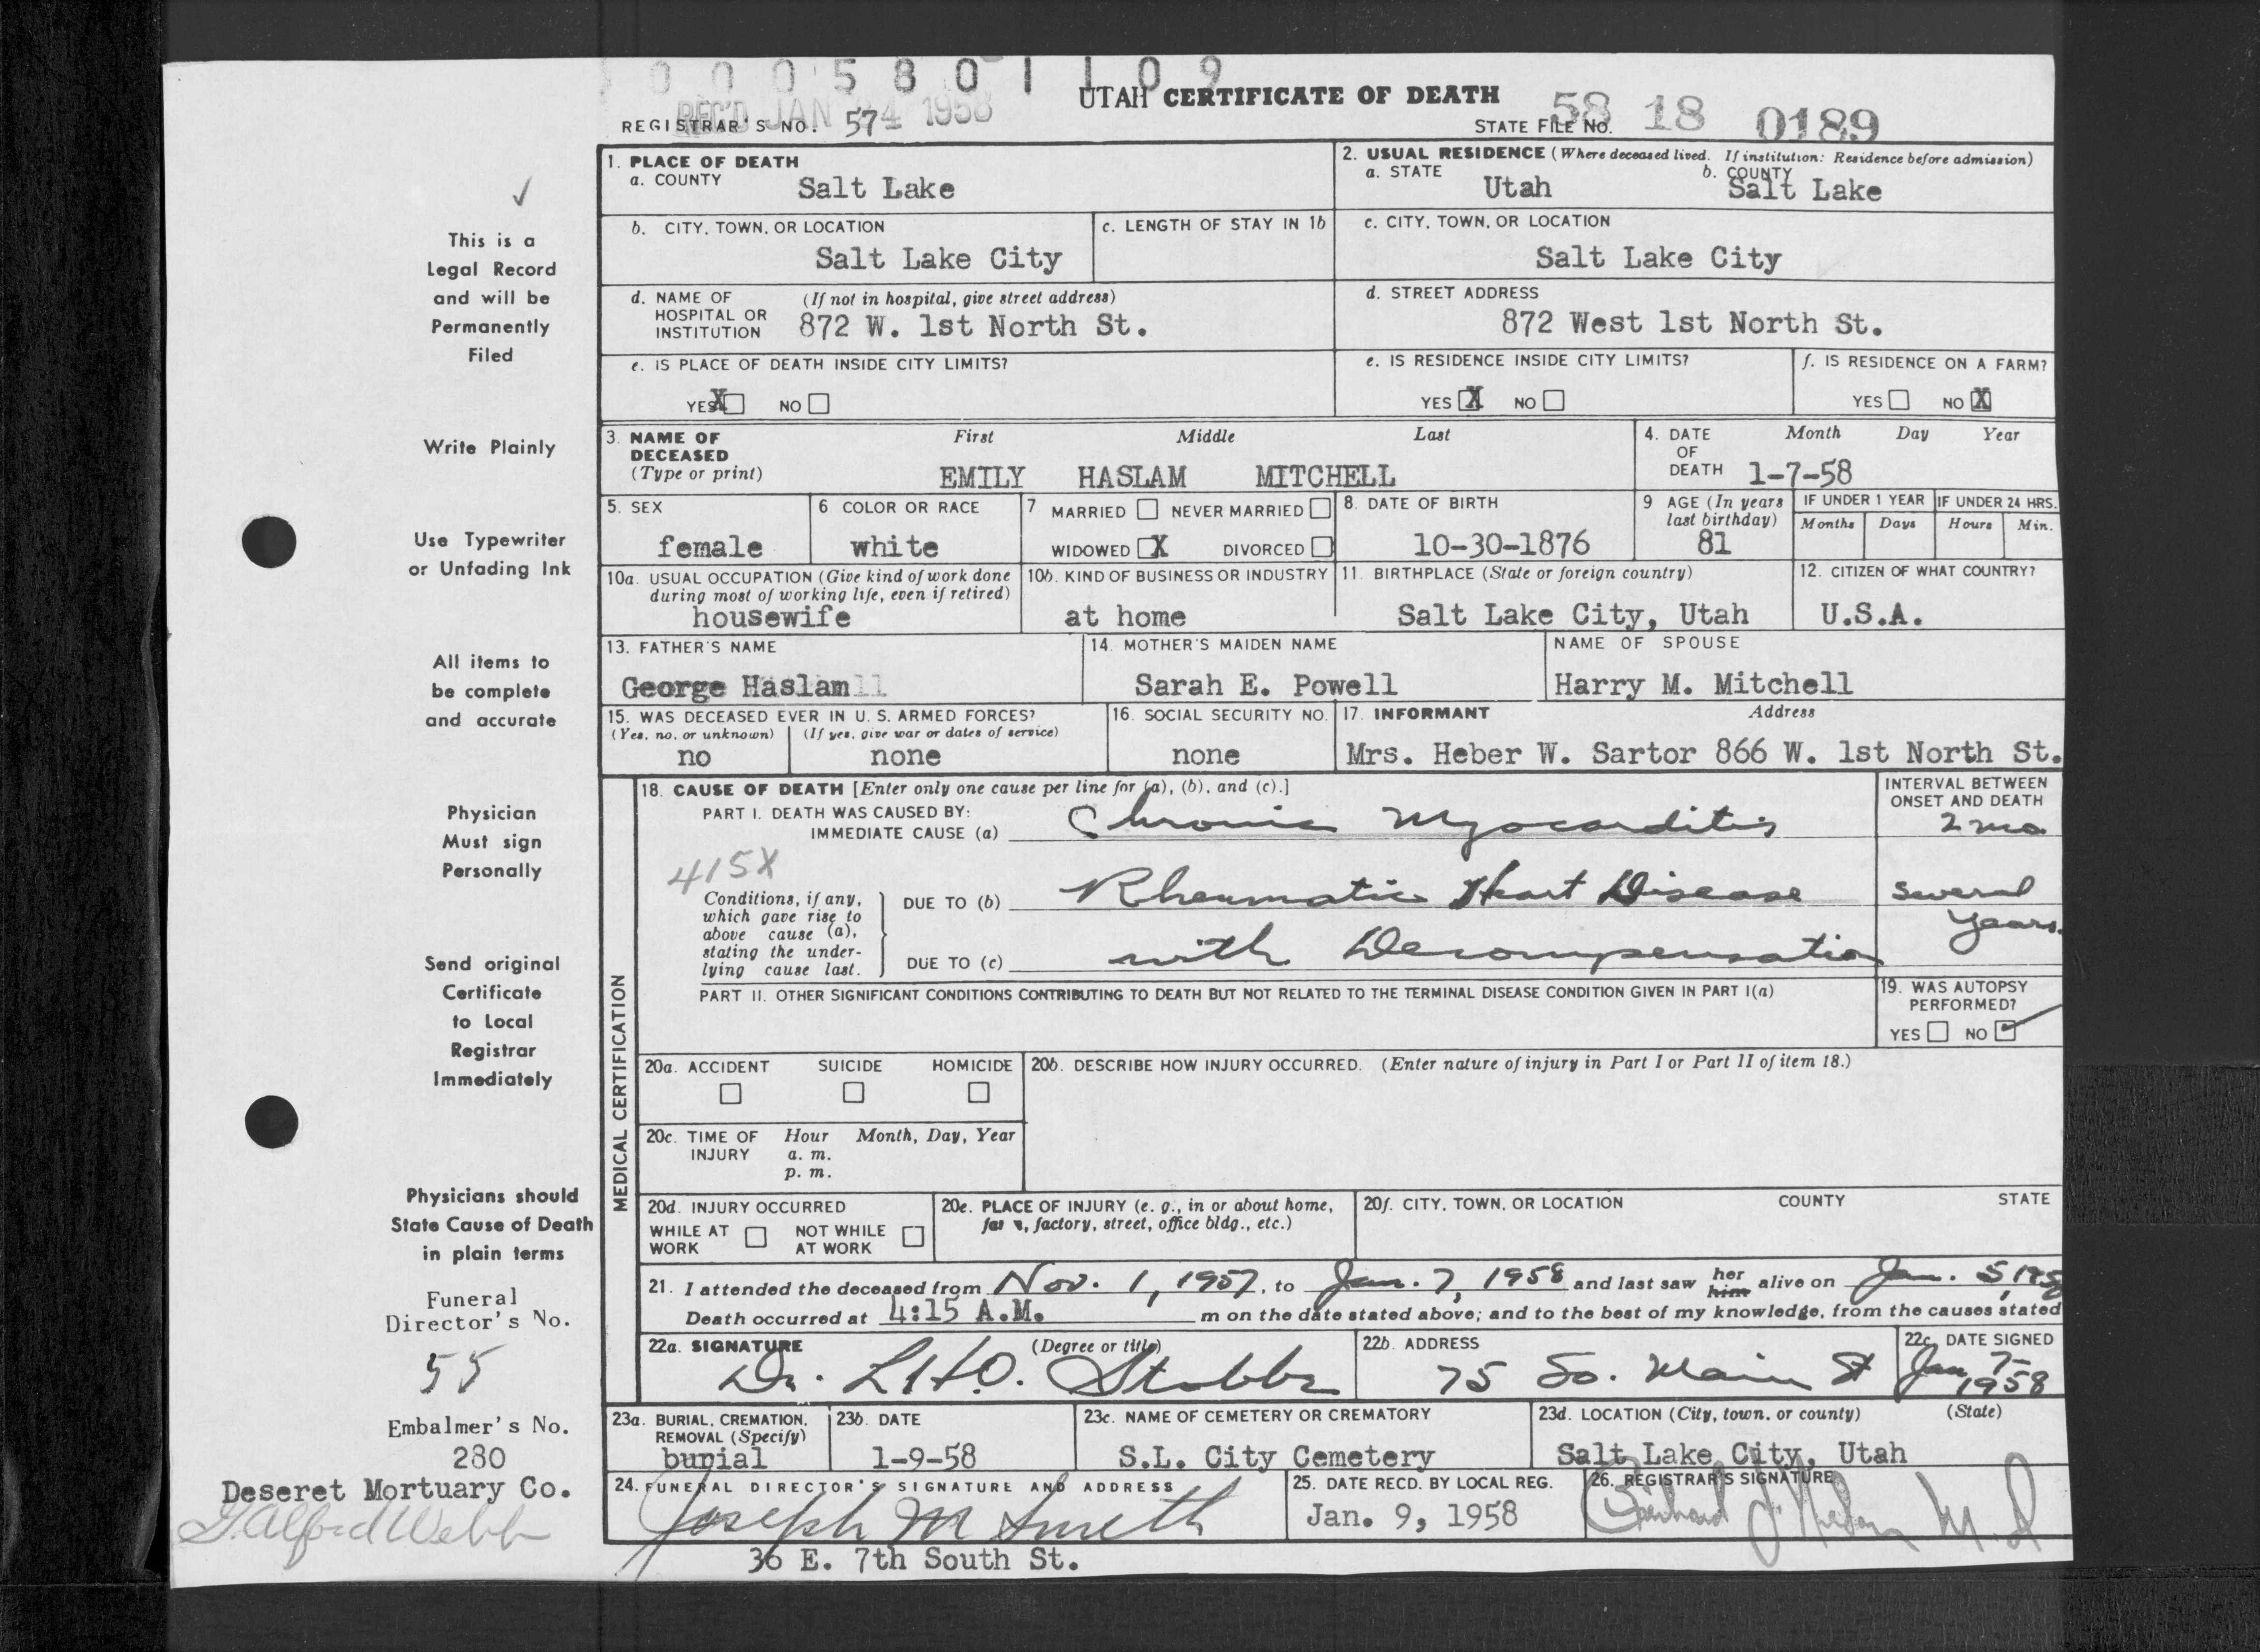 0 0 0 5 8 0 1 1 0 9
UTAH CERTIFICATE OF DEATH
REC'D JAN 1958
REGISTRAR'S NO. 57
STATE FILE NO. 58 18 0189
1. PLACE OF DEATH
a. COUNTY Salt Lake
2. USUAL RESIDENCE (Where deceased lived. If institution: Residence before admission)
a. STATE Utah b. COUNTY Salt Lake
b. CITY, TOWN, OR LOCATION Salt Lake City
c. LENGTH OF STAY IN 1b
c. CITY, TOWN, OR LOCATION
Salt Lake City
d. NAME OF HOSPITAL OR INSTITUTION (If not in hospital, give street address)
872 W. 1st North St.
d. STREET ADDRESS
872 West 1st North St.
e. IS PLACE OF DEATH INSIDE CITY LIMITS?
YES X NO
e. IS RESIDENCE INSIDE CITY LIMITS?
YES X NO
f. IS RESIDENCE ON A FARM?
YES NO X
3. NAME OF DECEASED (Type or print) First Middle Last
EMILY HASLAM MITCHELL
4. DATE OF DEATH Month Day Year
1-7-58
5. SEX
female
6 COLOR OR RACE
white
7 MARRIED NEVER MARRIED
WIDOWED X DIVORCED
8. DATE OF BIRTH
10-30-1876
9 AGE (In years last birthday)
81
IF UNDER 1 YEAR
Months Days
IF UNDER 24 HRS.
Hours Min.
10a. USUAL OCCUPATION (Give kind of work done during most of working life, even if retired)
housewife
10b. KIND OF BUSINESS OR INDUSTRY
at home
11. BIRTHPLACE (State or foreign country)
Salt Lake City, Utah
12. CITIZEN OF WHAT COUNTRY?
U.S.A.
13. FATHER'S NAME
George Haslam
14. MOTHER'S MAIDEN NAME
Sarah E. Powell
NAME OF SPOUSE
Harry M. Mitchell
15. WAS DECEASED EVER IN U. S. ARMED FORCES?
(Yes, no, or unknown) (If yes, give war or dates of service)
no none
16. SOCIAL SECURITY NO.
none
17. INFORMANT Address
Mrs. Heber W. Sartor 866 W. 1st North St.
MEDICAL CERTIFICATION
18. CAUSE OF DEATH [Enter only one cause per line for (a), (b), and (c).]
PART I. DEATH WAS CAUSED BY:
IMMEDIATE CAUSE (a) Chronic Myocarditis
INTERVAL BETWEEN ONSET AND DEATH
2 mo.
415X
Conditions, if any, which gave rise to above cause (a), stating the underlying cause last.
DUE TO (b) Rheumatic Heart Disease
several years.
DUE TO (c) with Decompensation
PART II. OTHER SIGNIFICANT CONDITIONS CONTRIBUTING TO DEATH BUT NOT RELATED TO THE TERMINAL DISEASE CONDITION GIVEN IN PART I(a)
19. WAS AUTOPSY PERFORMED?
YES NO ✓
20a. ACCIDENT SUICIDE HOMICIDE
20b. DESCRIBE HOW INJURY OCCURRED. (Enter nature of injury in Part I or Part II of item 18.)
20c. TIME OF INJURY Hour Month, Day, Year
a. m.
p. m.
20d. INJURY OCCURRED
WHILE AT WORK NOT WHILE AT WORK
20e. PLACE OF INJURY (e. g., in or about home, factory, street, office bldg., etc.)
20f. CITY, TOWN, OR LOCATION COUNTY STATE
21. I attended the deceased from Nov. 1, 1957, to Jan. 7, 1958 and last saw her him alive on Jan. 5, 1958
Death occurred at 4:15 A.M. m on the date stated above; and to the best of my knowledge, from the causes stated
22a. SIGNATURE (Degree or title)
Dr. Stobbe
22b. ADDRESS
75 So. Main St
22c. DATE SIGNED
Jan 7- 1958
23a. BURIAL, CREMATION, REMOVAL (Specify)
burial
23b. DATE
1-9-58
23c. NAME OF CEMETERY OR CREMATORY
S.L. City Cemetery
23d. LOCATION (City, town, or county) (State)
Salt Lake City, Utah
24. FUNERAL DIRECTOR'S SIGNATURE AND ADDRESS
Joseph M Smith
36 E. 7th South St.
25. DATE RECD. BY LOCAL REG.
Jan. 9, 1958
26. REGISTRAR'S SIGNATURE
M.D.
✓
This is a
Legal Record
and will be
Permanently
Filed
Write Plainly
Use Typewriter
or Unfading Ink
All items to
be complete
and accurate
Physician
Must sign
Personally
Send original
Certificate
to Local
Registrar
Immediately
Physicians should
State Cause of Death
in plain terms
Funeral
Director's No.
55
Embalmer's No.
280
Deseret Mortuary Co.
Alford Webb